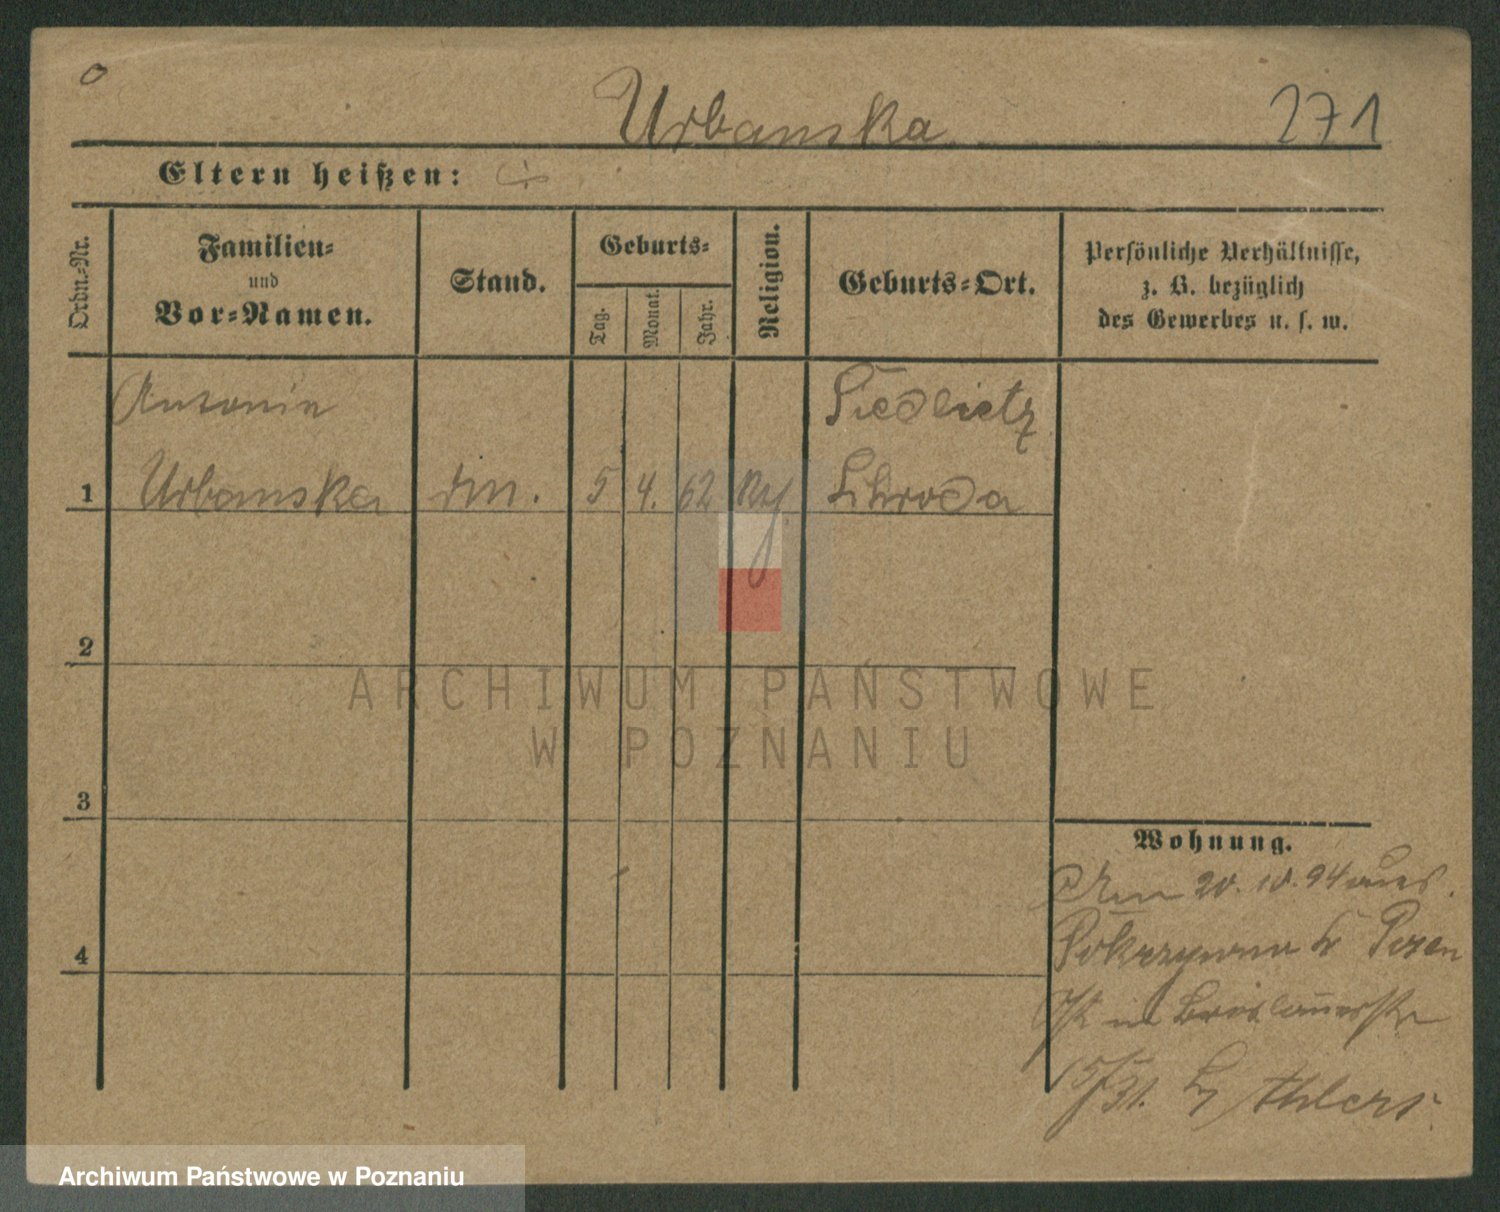 o
Urbanska
271
Eltern heißen:
Ordn.-Nr.
Familien-
und
Vor-Namen.
Stand.
Geburts-
Tag.
Monat.
Jahr.
Religion.
Geburts-Ort.
Persönliche Verhältnisse,
z. B. bezüglich
des Gewerbes u. s. w.
Antonie
Siedlietz
1 Urbanska 5 4. 62 Schroda
2
3
4
Wohnung.
Am 20. 10. 94 aus
Pokrzywno Posen
in Breslauerstr
15/31. Ahlers.
ARCHIWUM PAŃSTWOWE
W POZNANIU
Archiwum Państwowe w Poznaniu